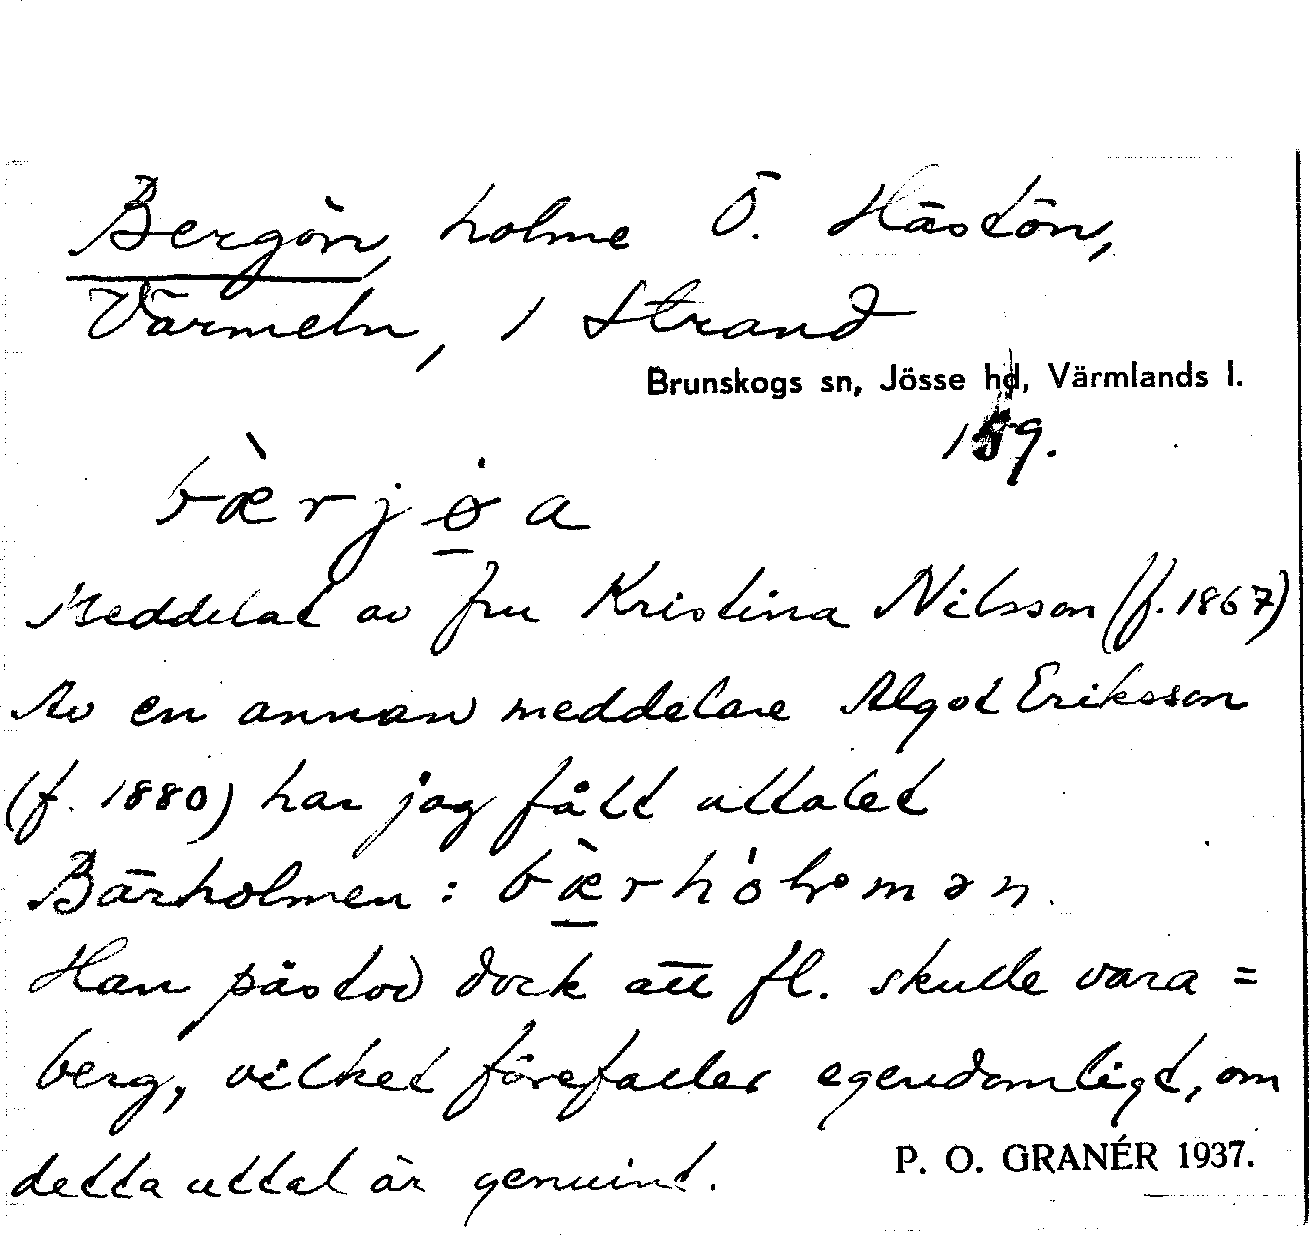 Bergön, holme Ö. Hästön,
Värmeln, i Strand
Brunskogs sn, Jösse hd, Värmlands l.
159.
bæ̀rjø̇a
Meddelat av fru Kristina Nilsson (f. 1867)
Av en annan meddelare Algot Eriksson
(f. 1880) har jag fått uttalet
Bärholmen : bæ̀rhȯlmən.
Han påstod dock att fl. skulle vara =
berg, vilket förefaller egendomligt, om
detta uttal är genuint.
P. O. GRANÉR 1937.